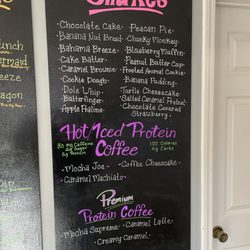 Shakes
- Chocolate Cake
- Peacan Pie
- Banana Nut Bread
- Chunky Monkey
- Bahama Breeze
- Blueberry Muffin
- Cake Batter
- Peanut Butter Cup
- Caramel Brownie
- Frosted Animal Cookie
- Cookie Dough
- Banana Pudding
- Dole Whip
- Turtle Cheesecake
- Butterfinger
- Salted Caramel Pretzel
- Apple Praline
- Chocolate Covered Strawberry
Hot/Iced Protein Coffee
80 mg Caffeine
100 Calories
- Mocha Joe
- Coffee Cheesecake
- Caramel Machiato
Premium
Protein Coffee
- Mocha Supreme
- Caramel Latte
- Creamy Caramel
unch
armin
eeze
agon
ip